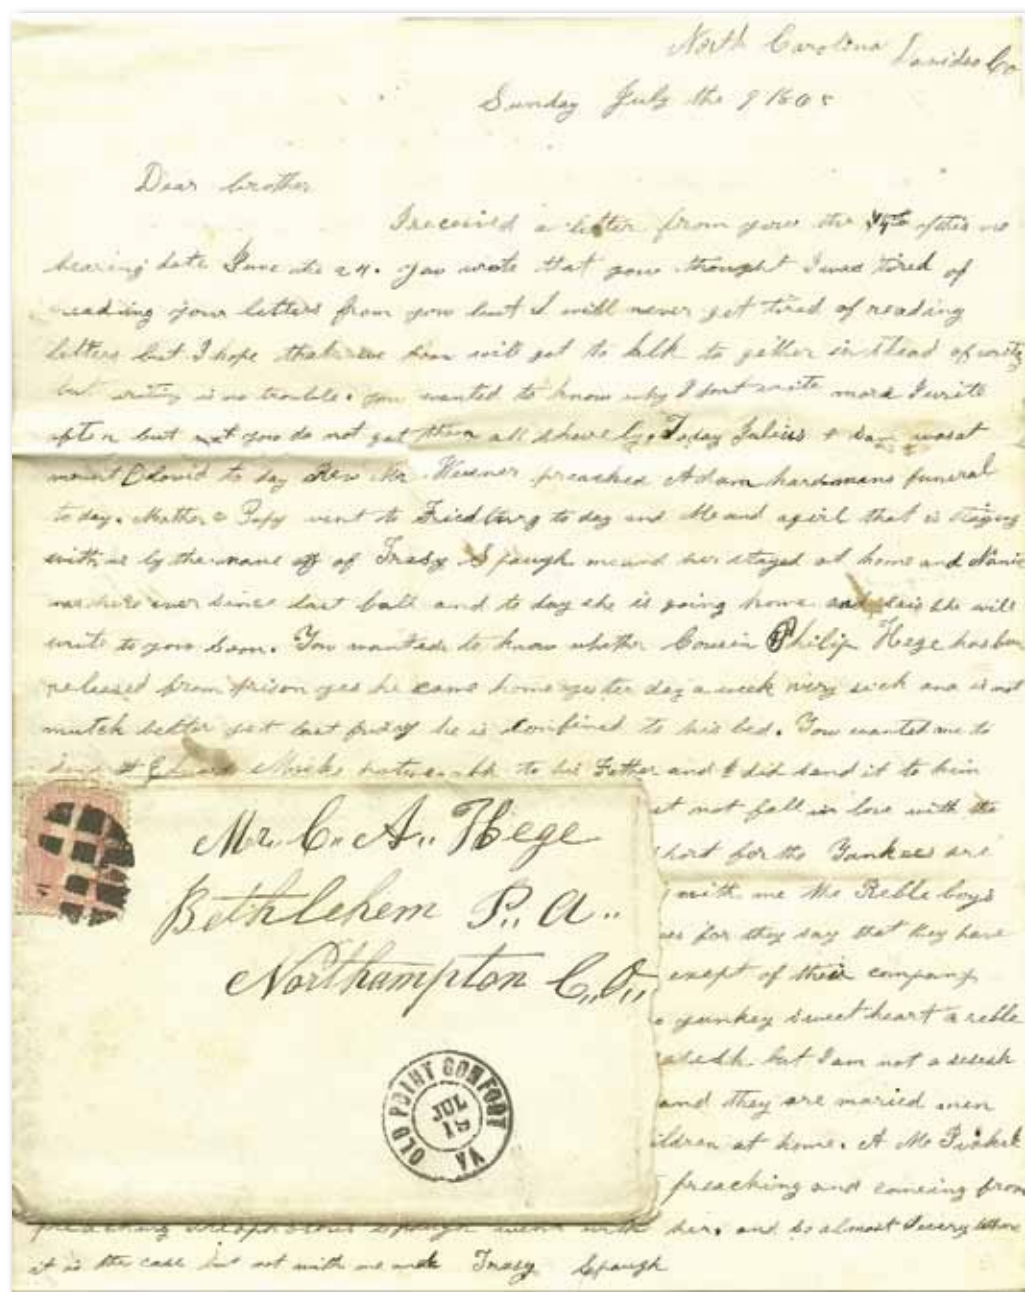 North Carolina Davidso Co
Sunday July the 9 1865
Dear brother
I received a letter from you the
bearing date June the 24. you wrote that you thought I was tired of
reading your letters from you but I will never get tired of reading
letters but I hope that we soon will get to talk to gether in stead of
but writing is no trouble. you wanted to know why I dont write more I write
often but you do not get them all shurely. Today Julius &
mount Olovid to day Rev Mr. preached Adam hardmans funeral
to day. Mother & Papy went to Friedburg to day and Me and a girl that is staying
with us by the name off of Tresy Spaugh me and her stayed at home and
was here ever since last fall and to day she is going home and she will
write to you soon. You wanted to know whether Cousin Philip Hege has
released from prison yes he came home yester day a week very sick and is not
mutch better yet last friday he is confined to his bed. You wanted me to
send to his Father and I did send it to him
not fall in love with the
short for the Yankees are
with me the Reble boys
for they say that they have
exept of their company
yankey sweet heart a reble
but I am not a sesesh
and they are maried men
ildren at home. A Mc
preaching and comeing from
preaching Spaugh went with her. and so almost every
it is the case but not with me Tresy Spaugh
Mr. C. A. Hege
Bethlehem P. A.
Northampton C. O.
OLD POINT COMFORT
JUL
VA